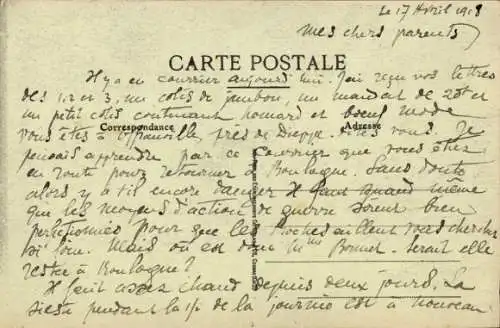 Le 17 Avril 1918
Mes chers parents
CARTE POSTALE
Il y a eu courrier aujourd'hui. J'ai reçu vos lettres
des 1, 2 et 3, un colis de jambon, un mandat de 20f et
un petit colis contenant homard et boeuf mode
Correspondance
Adresse
Vous êtes à près de Dieppe. vous. Je
pensais apprendre par ce courrier que vous étiez
en route pour retourner à Boulogne. Sans doute
alors y a t'il encore danger. Il faut quand même
que les moyens d'action de guerre soient bien
perfectionnés pour que les Boches aillent vous chercher
si loin. Mais où est donc Mme Bonnet. Serait elle
restée à Boulogne?
Il fait assez chaud depuis deux jours. La
sieste pendant la 1/2 de la journée est à nouveau